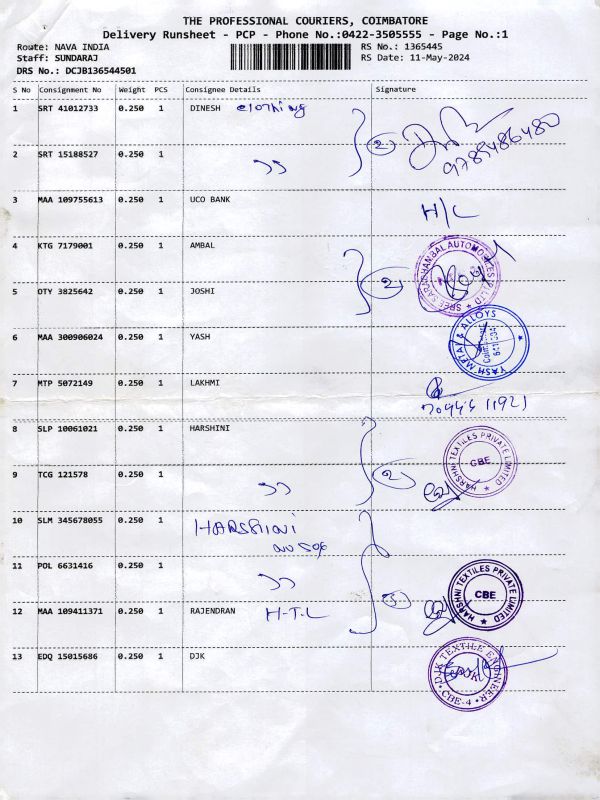 THE PROFESSIONAL COURIERS, COIMBATORE
Delivery Runsheet - PCP - Phone No.:0422-3505555 - Page No.:1
Route: NAVA INDIA
RS No.: 1365445
Staff: SUNDARAJ
RS Date: 11-May-2024
DRS No.: DCJB136544501
S No Consignment No Weight PCS Consignee Details Signature
1 SRT 41012733 0.250 1 DINESH clothing 2
9789486480
2 SRT 15188527 0.250 1 ,,
3 MAA 109755613 0.250 1 UCO BANK H/C
4 KTG 7179001 0.250 1 AMBAL
5 OTY 3825642 0.250 1 JOSHI 2
6 MAA 300906024 0.250 1 YASH YASH METAL & ALLOYS
7 MTP 5072149 0.250 1 LAKHMI
8 SLP 10061021 0.250 1 HARSHINI HARSHNI TEXTILES PRIVATE LIMITED CBE
9 TCG 121578 0.250 1 ,, 2
10 SLM 345678055 0.250 1 HARSHINI
11 POL 6631416 0.250 1 ,, HARSHNI TEXTILES PRIVATE LIMITED CBE
12 MAA 109411371 0.250 1 RAJENDRAN H-T-L 3
13 EDQ 15015686 0.250 1 DJK DJK TEXTILE ENGINEER CBE-4